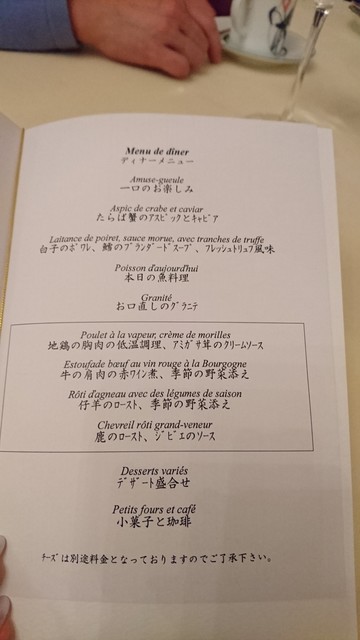 Menu de dîner
ディナーメニュー
Amuse-gueule
一口のお楽しみ
Aspic de crabe et caviar
たらば蟹のアスピックとキャビア
Laitance de poiret, sauce morue, avec tranches de truffe
白子のポワレ、鱈のブランダードスープ、フレッシュトリュフ風味
Poisson d'aujourd'hui
本日の魚料理
Granité
お口直しのグラニテ
Poulet à la vapeur, crème de morilles
地鶏の胸肉の低温調理、アミガサ茸のクリームソース
Estoufade bœuf au vin rouge à la Bourgogne
牛の肩肉の赤ワイン煮、季節の野菜添え
Rôti d'agneau avec des légumes de saison
仔羊のロースト、季節の野菜添え
Chevreil rôti grand-veneur
鹿のロースト、ジビエのソース
Desserts variés
デザート盛合せ
Petits fours et café
小菓子と珈琲
チーズは別途料金となっておりますのでご了承下さい。